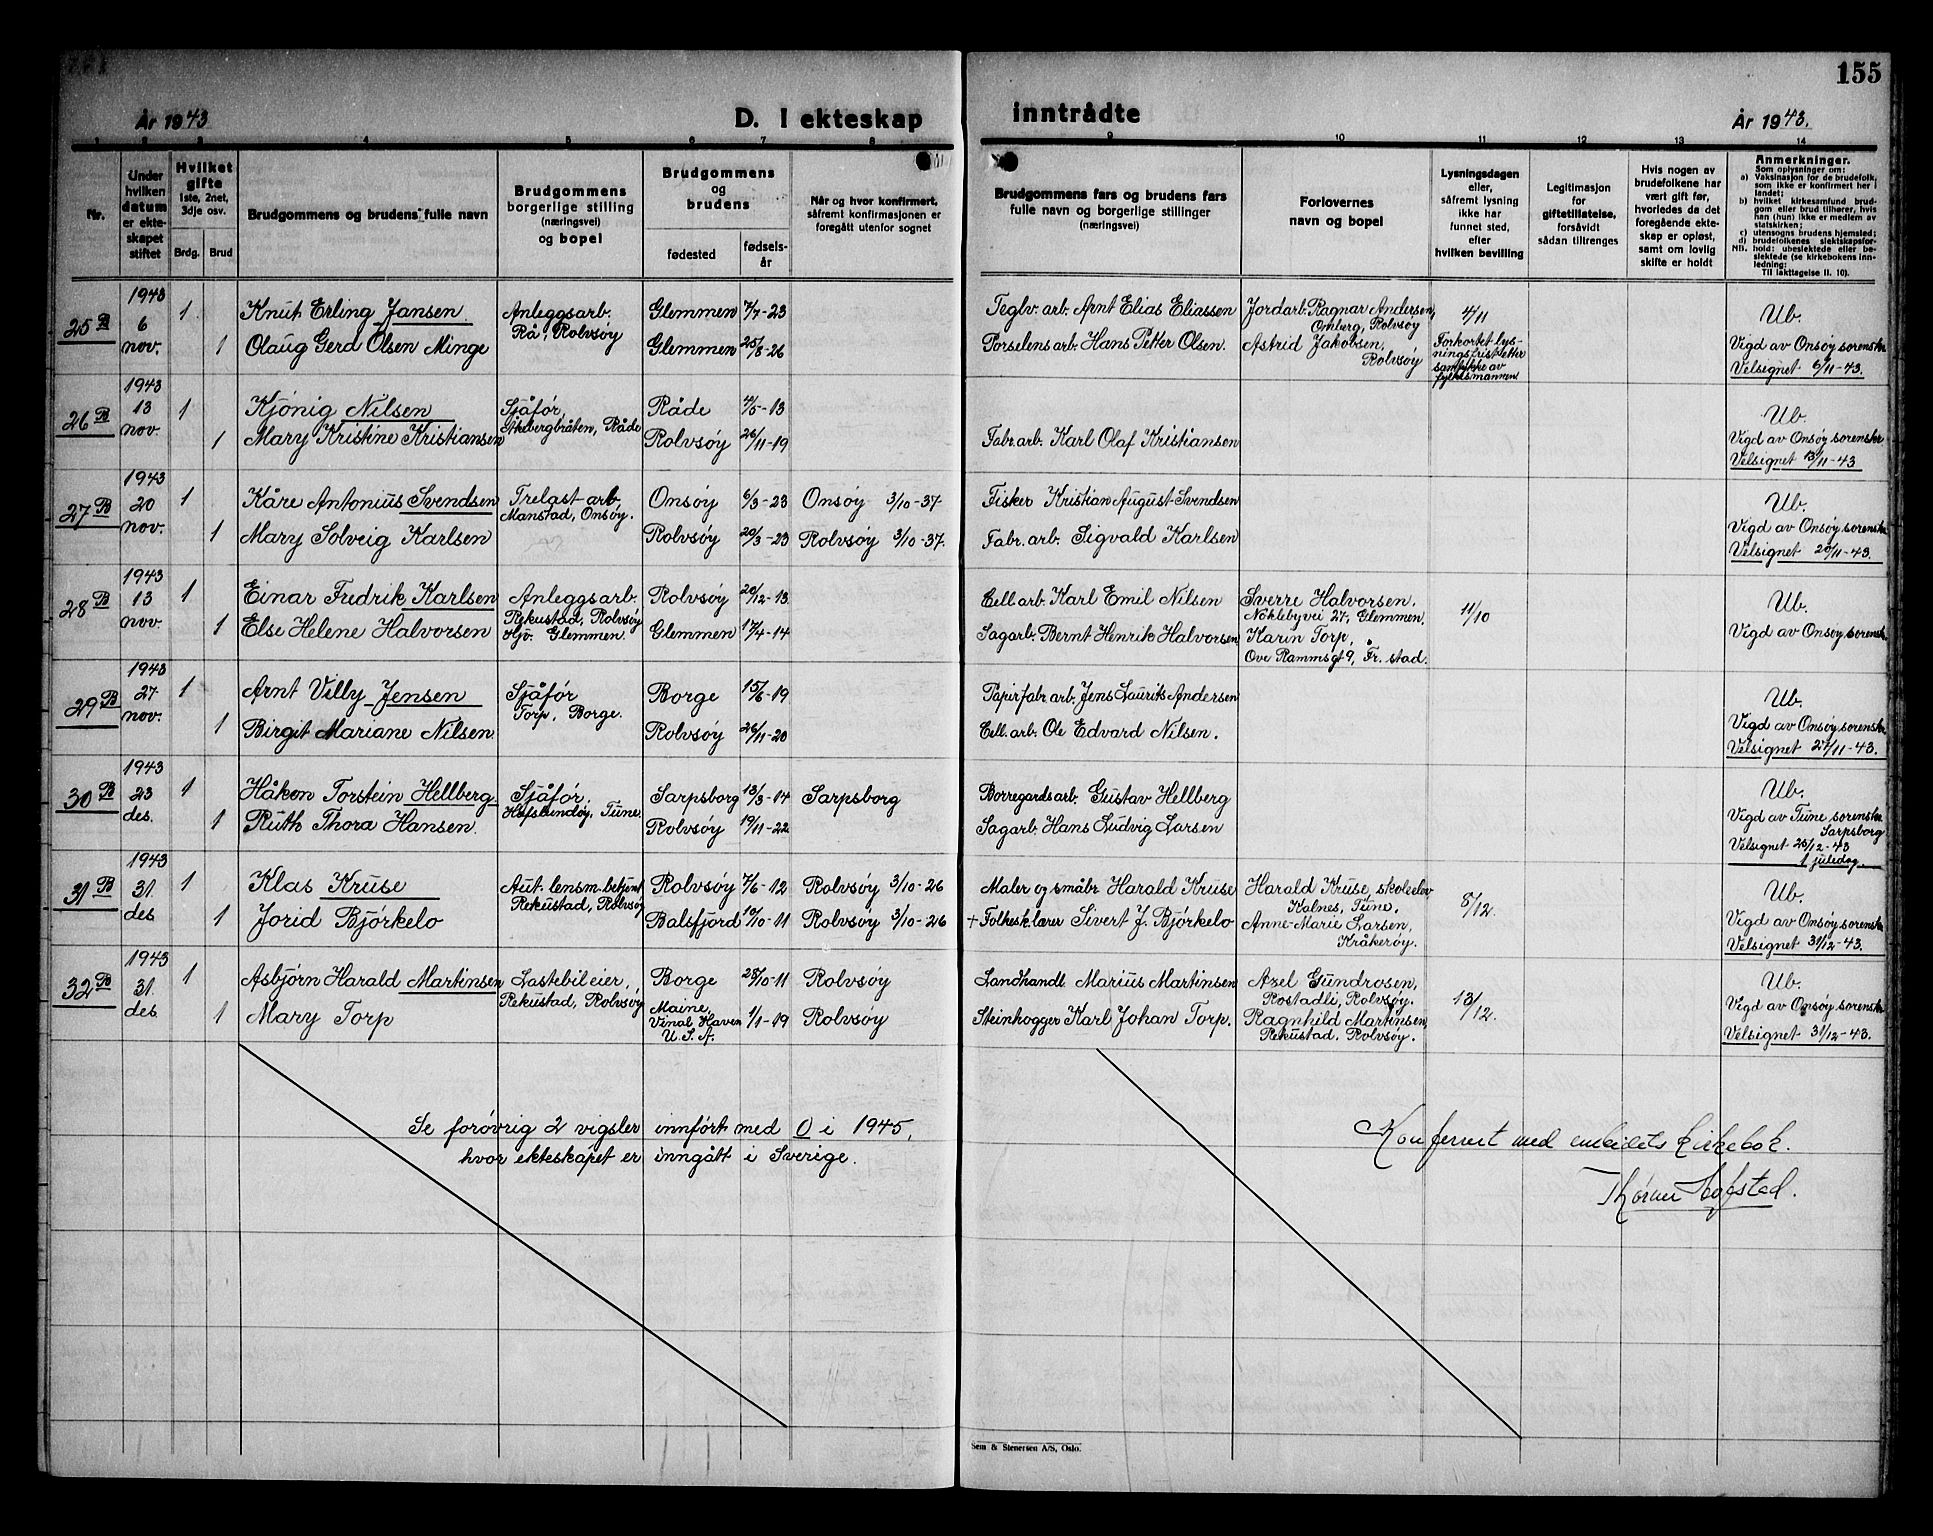 155
År 1943
D. I ekteskap
inntrådte
År 1943.
1 2 3 4 5 6 7 8 9 10 11 12 13 14
Nr.
Under
hvilken
datum
er ekte-
skapet
stiftet
Hvilket
gifte
1ste, 2net,
3dje osv.
Brdg. Brud
Brudgommens og brudens fulle navn
Brudgommens
borgerlige stilling
(næringsvei)
og bopel
Brudgommens
og
brudens
fødested
fødsels-
år
Når og hvor konfirmert,
såfremt konfirmasjonen er
foregått utenfor sognet
Brudgommens fars og brudens fars
fulle navn og borgerlige stillinger
(næringsvei)
Forlovernes
navn og bopel
Lysningsdagen
eller,
såfremt lysning
ikke har
funnet sted,
efter
hvilken bevilling
Legitimasjon
for
giftetillatelse,
forsåvidt
sådan tiltrenges
Hvis nogen av
brudefolkene har
vært gift før,
hvorledes da det
foregående ekte-
skap er opløst,
samt om lovlig
skifte er holdt
Anmerkninger.
Som oplysninger om:
a) Vaksinasjon for de brudefolk,
som ikke er konfirmert her i
landet;
b) hvilket kirkesamfund brud-
gom eller brud tilhører, hvis
han (hun) ikke er medlem av
statskirken;
c) utensogns brudens hjemsted;
d) brudefolkenes slektskapsfor-
hold: ubeslektede eller be-
slektede (se kirkebokens inn-
ledning:
NB.
Til iakttagelse II. 10).
25 B
1943
6
nov.
1
Knut Erling Jansen
Anleggsarb.
Rå, Rolvsöy
Glemmen 7/7-23
Teglv. arb. Arnt Elias Eliassen
Jordarb. Ragnar Andersen,
Omberg, Rolvsöy
4/11
Ub.
1
Olaug Gerd Olsen Minge
Glemmen 25/8-26
Porselensarb. Hans Petter Olsen.
Astrid Jakobsen,
Rolvsöy
Forkortet lys-
ningsfrist etter
samtykke av
fylkesmannen
Vigd av Onsöy sorenskr
Velsignet 6/11-43.
26 B
1943
13
nov.
1
Kjönig Nilsen
Sjåför,
Åkebergbråten, Råde
Råde 4/5-13
Ub.
1
Mary Kristine Kristiansen
Rolvsöy 26/11-19
Fabr. arb. Karl Olaf Kristiansen
Vigd av Onsöy sorenskr
Velsignet 13/11-43
27 B
1943
20
nov.
1
Kåre Antonius Svendsen
Trelast-arb.
Manstad, Onsöy.
Onsöy 6/3-23
Onsöy 3/10-37.
Fisker Kristian August Svendsen
Ub.
1
Mary Solveig Karlsen
Rolvsöy 20/3-23
Rolvsöy 3/10-37.
Fabr. arb. Sigvald Karlsen
Vigd av Onsöy sorenskr
Velsignet 20/11-43.
28 B
1943
13
nov.
1
Einar Fredrik Karlsen
Anleggsarb.
Rekustad, Rolvsöy
Hjv. Glemmen.
Rolvsöy 20/12-13.
Cell. arb. Karl Emil Nilsen
Sverre Halvorsen,
Noklebyvei 27, Glemmen,
11/10
Ub.
1
Else Helene Halvorsen
Glemmen 17/4-14
Sagarb. Bernt Henrik Halvorsen
Karin Torp,
Ove Rammsgt 9, Fr. stad.
Vigd av Onsöy sorenskr.
29 B
1943
27
nov.
1
Arnt Villy Jensen
Sjåför
Torp, Borge.
Borge 15/6-19
Papirfabr arb. Jens Laurits Andersen
Ub.
1
Birgit Mariane Nilsen
Rolvsöy 26/11-20
Cell. arb. Ole Edvard Nilsen.
Vigd av Onsöy sorenskr
Velsignet 27/11-43.
30 B
1943
23
des.
1
Håkon Torstein Hellberg
Sjåför,
Hafslundöy, Tune.
Sarpsborg 13/3-14
Sarpsborg
Borregardsarb. Gustav Hellberg
Ub.
1
Ruth Thora Hansen
Rolvsöy 19/11-22
Sagarb. Hans Ludvig Larsen
Vigd av Tune sorenskr
Sarpsborg
Velsignet 25/12-43
1 juledag
31 B
1943
31.
des
1
Klas Kruse
Aut. lensm. betjent
Rekustad, Rolvsöy
Rolvsöy 7/6-12
Rolvsöy 3/10-26
Maler og småbr. Harald Kruse
Harald Kruse, skoleelev
Kalnes, Tune,
8/12.
Ub.
1
Jorid Björkelo
Balsfjord 10/10-11
Rolvsöy 3/10-26
+ Folkesk.lærer Sivert J. Björkelo
Anne-Marie Larsen,
Kråkeröy.
Vigd av Onsöy sorenskr
Velsignet 31/12-43.
32 B
1943
31.
des.
1
Asbjörn Harald Martinsen
Lastebileier,
Rekustad, Rolvsöy
Borge 28/10-11
Rolvsöy
Landhandl. Marius Martinsen
Axel Gundrosen,
Rostadli, Rolvsöy.
13/12.
Ub.
1
Mary Torp
Maine,
Vinal Haven
U.S.A.
1/1-19
Rolvsöy
Steinhogger Karl Johan Torp.
Ragnhild Martinsen,
Rekustad, Rolvsöy.
Vigd av Onsöy sorenskr
Velsignet 31/12-43.
Se foróvrig 2 vigsler innfört med 0 i 1945,
hvor ekteskapet er inngått i Sverige.
Konferert med embedets kirkebok.
Sem & Stenersen A/S, Oslo.